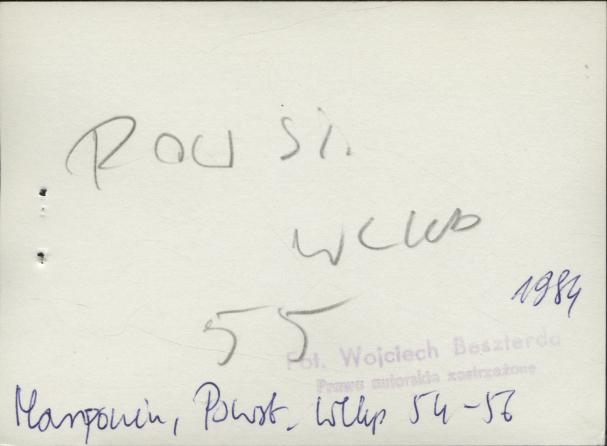 Powst.
wlkp
55
1984
Fot. Wojciech Beszterda
Prawa autorskie zastrzeżone
Margonin, Powst. Wlkp 54-56